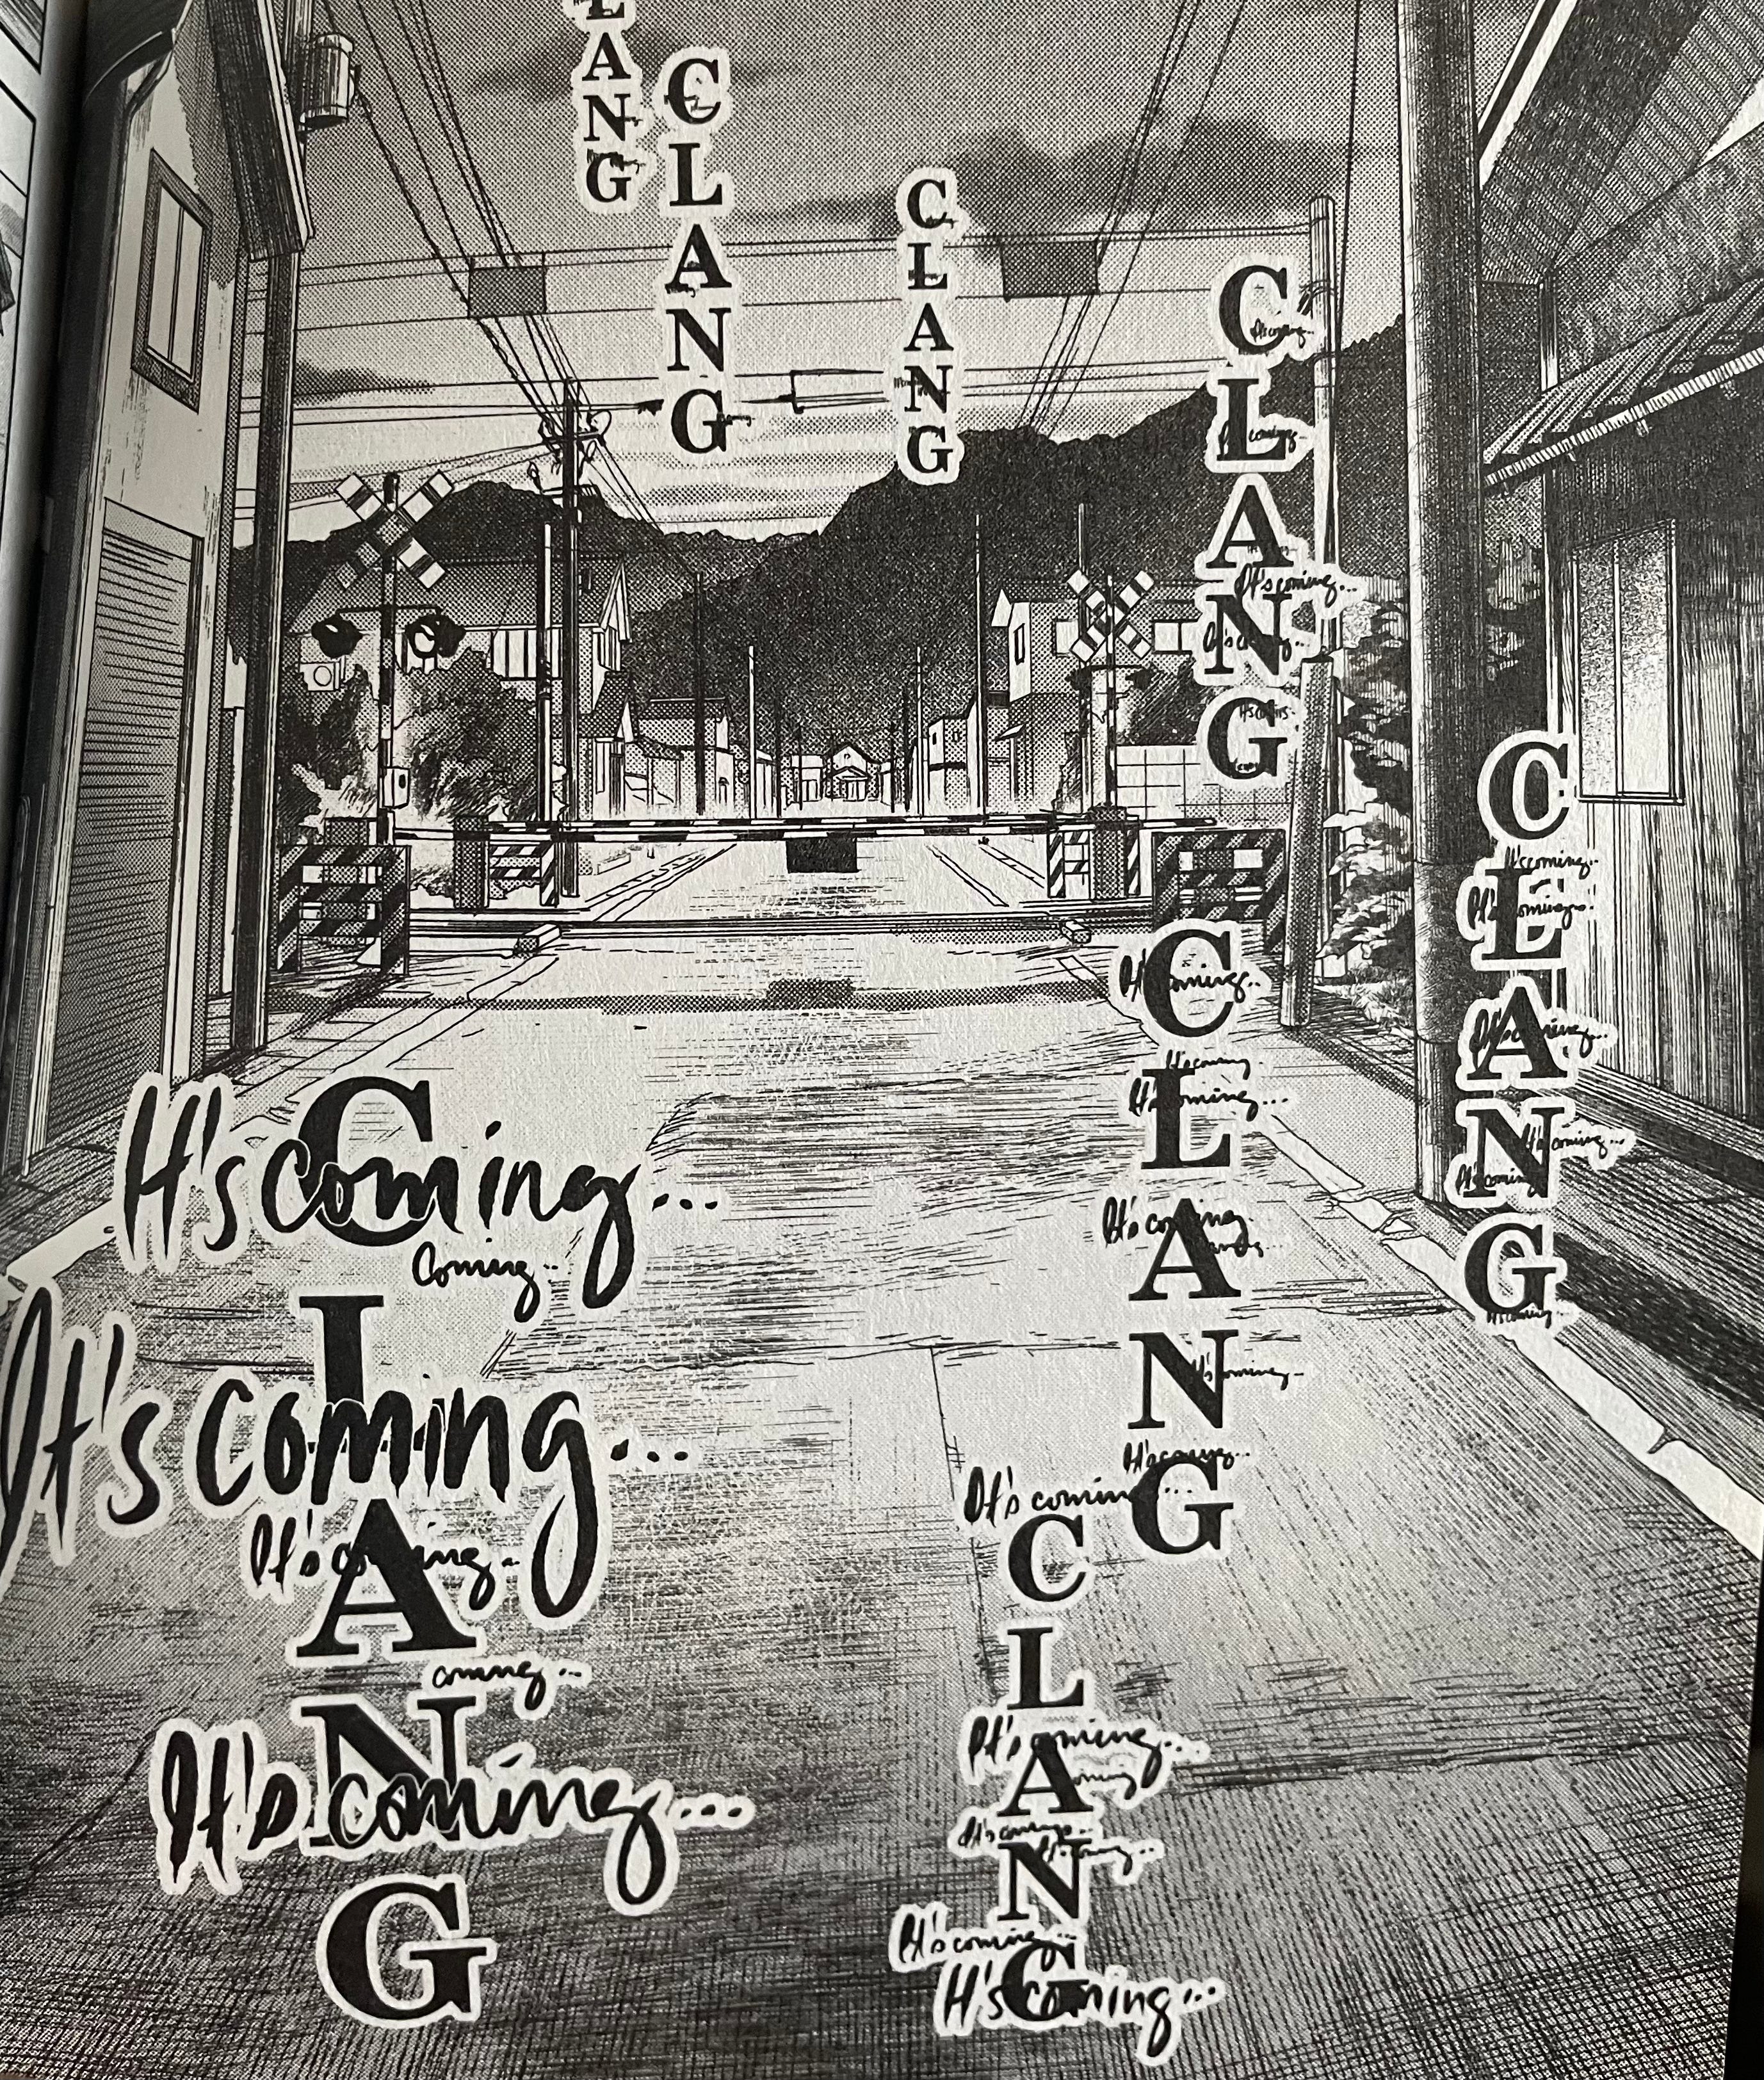 LANG
CLANG
CLANG
CLANG
It's coming...
It's coming...
It's coming...
CLANG
It's coming...
It's coming...
It's coming...
It's coming...
It's coming...
It's coming...
CLANG
It's coming...
It's coming
It's coming...
It's coming...
It's coming...
It's coming...
CLANG
It's coming...
It's coming...
coming
It's coming...
It's coming...
It's coming...
It's coming...
CLANG
It's coming...
Coming...
It's coming...
It's coming...
coming...
It's coming...